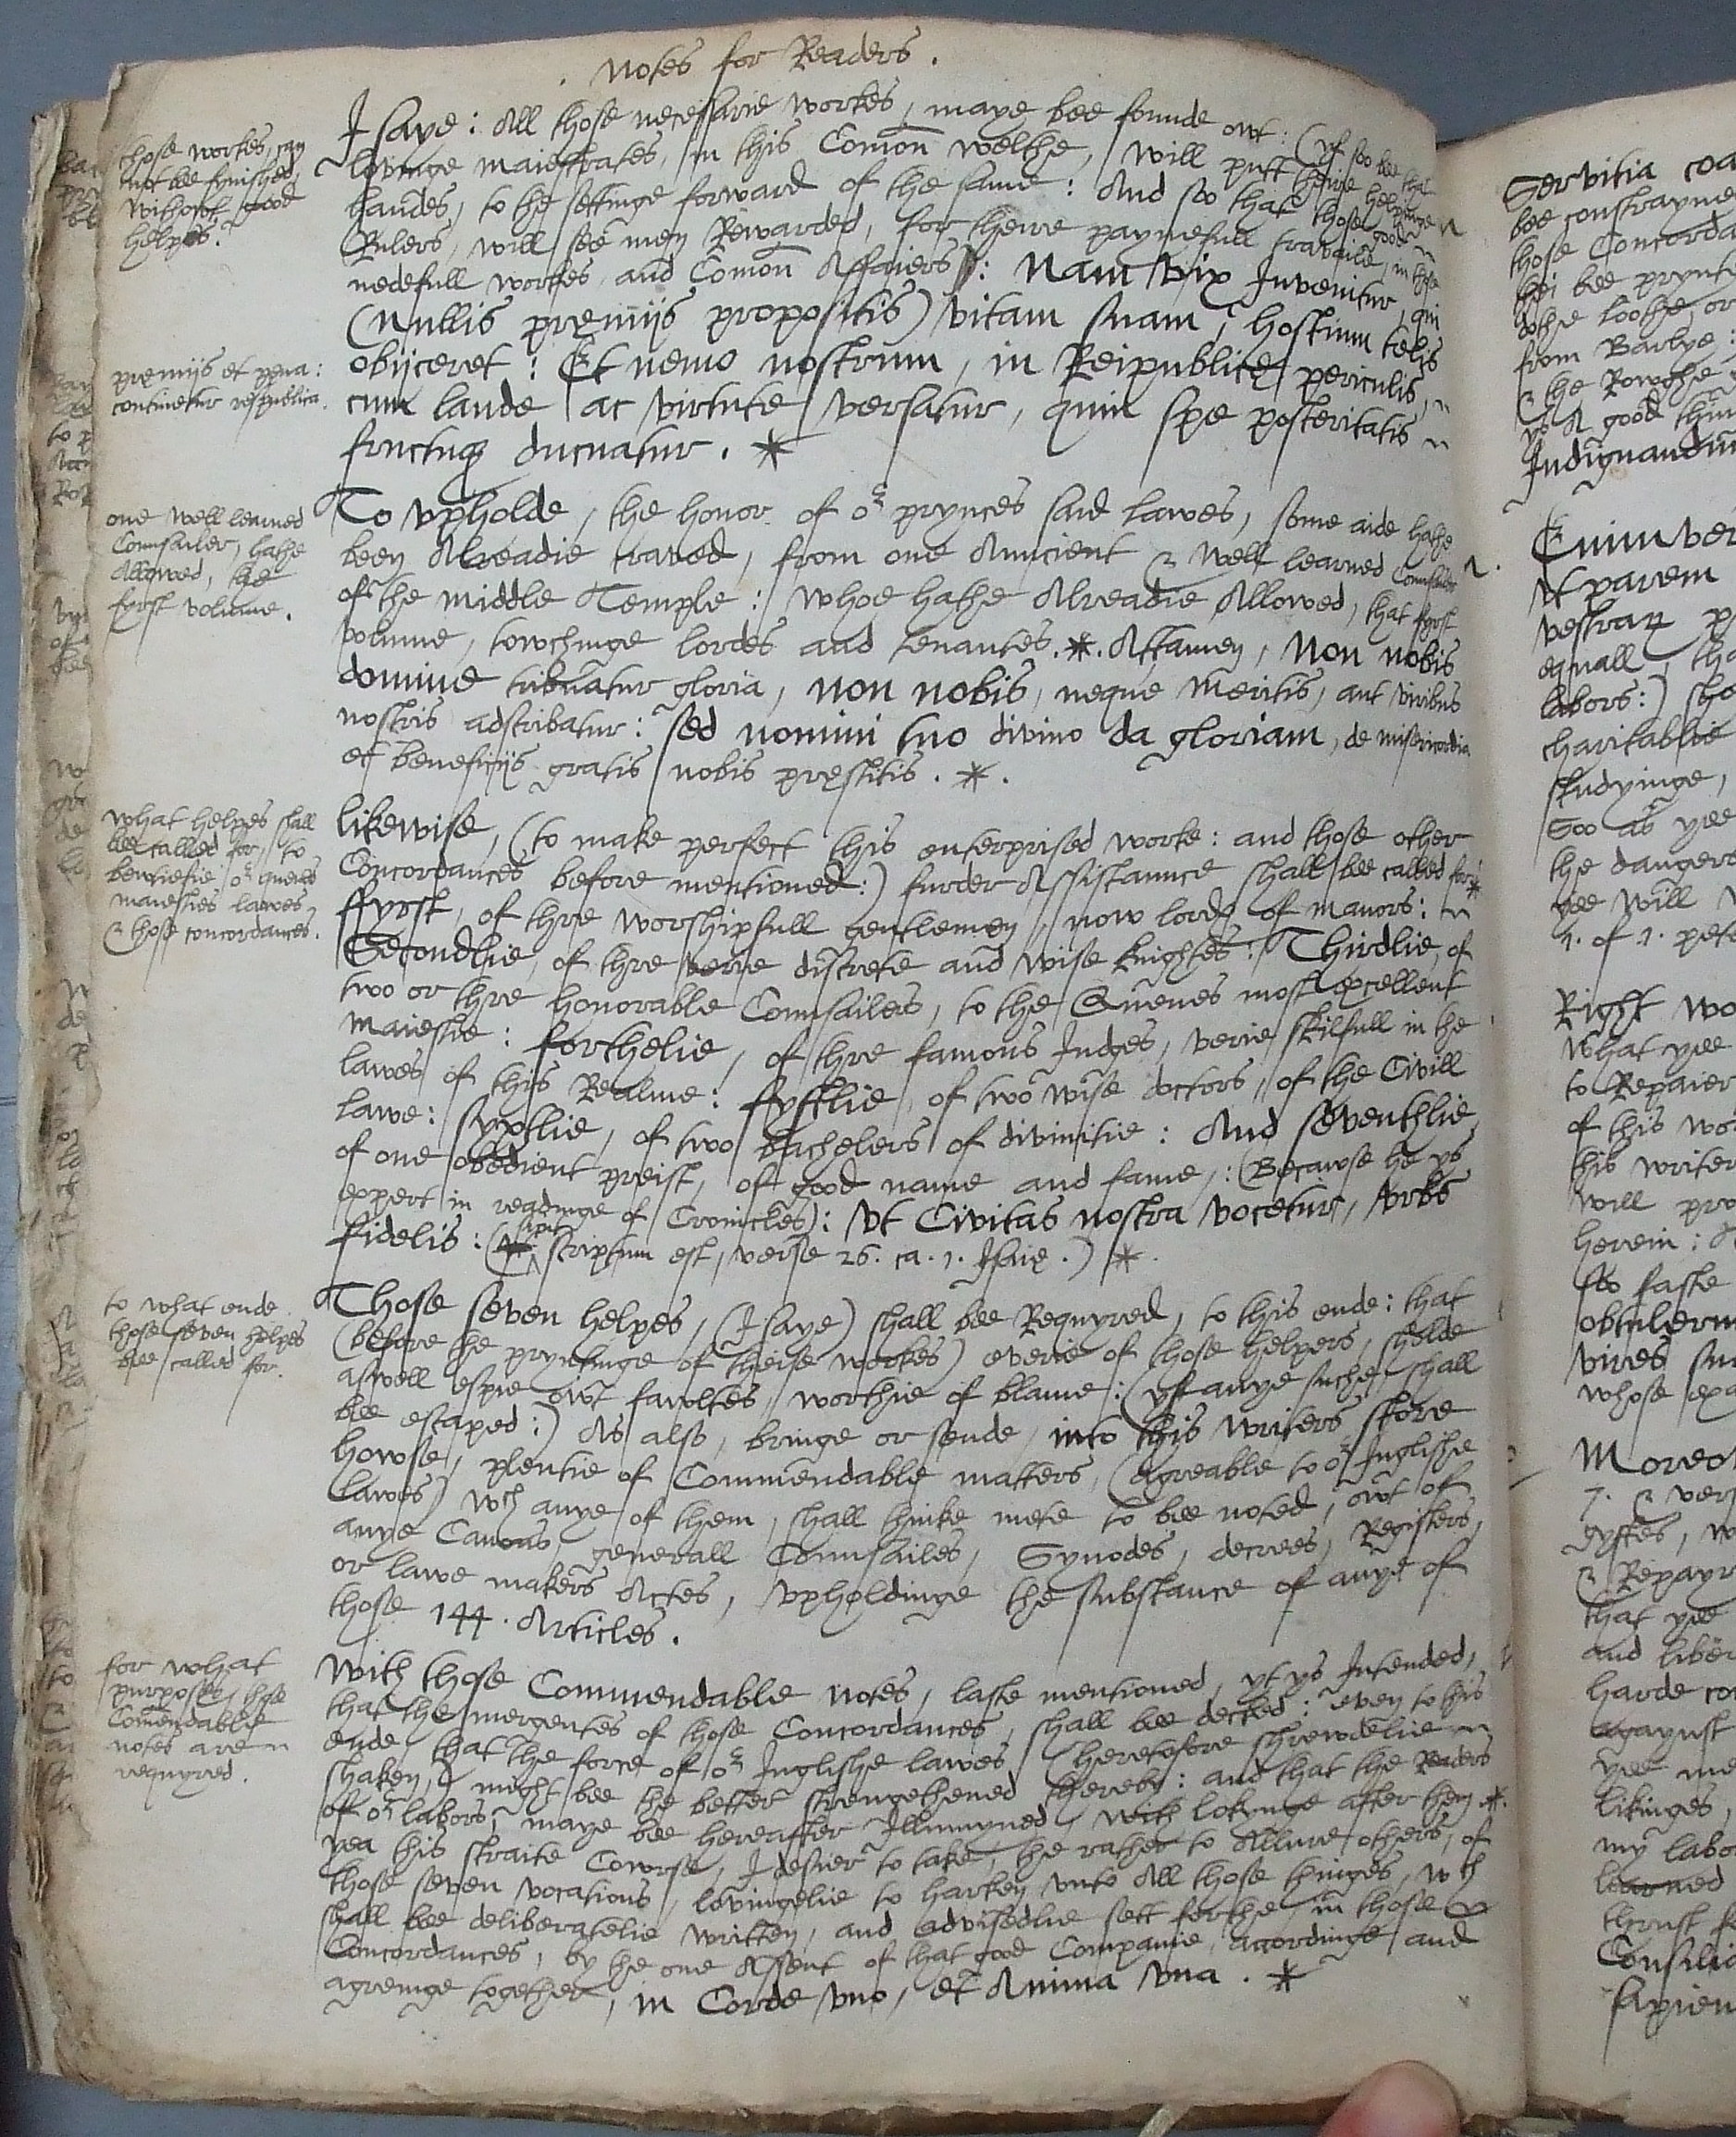 . Notes for Readers .
I saye : All those necessarie workes , maye bee founde owt : ( yf soo bee that
lovinge maiestrates , in this Comon welthe , will putt theire helpinge
handes , to the settinge forward of the same : And soo that those good
Rulers , will see men Rewarded , for theire paynefull travaile , in those
nedefull workes , and Comon Affaiers ) : Nam vix Invenitur , qui
( Nullis premijs propositis ) vitam suam , hostium telis
obijceret : Et nemo nostrum , in Reipublicę periculis ,
cum laude ac virtute versatur , quin spe posteritatis
fructuq ducuatur . *
those workes , can
not bee fynished ,
withowt good
helpes .
premijs et pena :
continetur respublica .
To vpholde , the honor of or prynces said lawes , some aide hathe
been Alreadie craved , from one Auncient & well learned Counsailer
of the middle Temple : whoe hathe Alreadie Allowed , that fyrst
volume , towchinge lordes and tenantes . * . Attamen , Non nobis
domine tribuatur gloria , non nobis , neque meritis , aut viribus
nostris adscribatur : sed nomini tuo divino da gloriam , de misericordia
et beneficijs gratis nobis pręstitis . * .
one well learned
Counsailer , hathe
Allowed , the
fyrst volume .
likewise , ( to make perfect this enterprised worke : and those other
Concordances before mentioned : ) furder Assistaunce shall bee called for : *
ffyrst , of thre worshipfull gentlemen , now lordes of manors :
Secondlie , of thre verie discrete and wise knightes : Thirdlie , of
two or thre honorable Counsailers , to the Quenes most excellent
maiestie : forthelie , of thre famous Judges , verie skilfull in the
lawes of this Realme : fyftlie , of two wise doctors , of the Civill
lawe : syxtlie , of two bachelers of divinitie : And seventhlie ,
of one obedient preist , of good name and fame , : ( Becawse he ys
expert in readinge of Cronicles ) : vt Civitas nostra vocetur , vrbs
fidelis : ( sicut scriptum est , verse 26 . ca . 1 . Isaię . ) *
what helpes shall
bee called for , to
benefitte or quenes
maiesties lawes ,
& those concordances .
Those seven helpes , ( I saye ) shall bee Requyred , to this ende : that
( before the pryntinge of theise workes ) everie of those helpers , sholde
aswell espie owt fawltes , worthie of blame : ( yf anye suche , shall
bee escaped : ) As also , bringe or sende , into this writers store
howse , plentie of Commendable matters , ( Agreable to or Inglishe
lawes ) wch anye of them , shall thinke mete to bee noted , owt of
anye Canons , generall Counsailes , Synodes , decrees , Registers ,
or lawe makers Actes , vpholdinge the substance of anye of
those 144 . Articles .
to what ende
those seven helpes
bee called for .
With those Commendable notes , laste mentioned , yt ys Intended ,
that the mergentes of those Concordances , shall bee decked : even to this
ende , that the force of or Inglishe lawes ( heretofore shrewdelie
shaken , ) might bee the better strengethened thereby : and that the Readers
of or labors , maye bee hereafter Illumyned , with lokynge after them * .
yea this straite Cowrse , I desier to take , the rather to Allure others , of
those seven vocations , lovingelie to harken vnto All those thinges , wch
shall bee deliberatelie written , and advisedlie sett forthe , in those
Concordances , by the one Assent of that good Companie , accordinge and
agreinge together , in Corde vno , et Anima vna . *
for what
purpose , those
Comendable
notes are
requyred .
Servitia coa
bee constrayne
those Concorda
thei bee prynt
from Barlye :
& the Rowghe
ys A good thin
Indignandum
Enimver
vt parem
equall , tha
labors : ) sho
charitablie
studyinge ,
Soo as yee
the dangers
yee will
Right wo
what yee
to Repaier
of this wor
his writer
will pro
herein : A
soo faste
obtulerun
vires su
whose exa
Moreo
7 . & ver
gyftes , w
& Repayr
that yee
and liber
harde co
agaynst
yee me
likinges ,
my labo
learned
thrust f
Consilia
Sapien